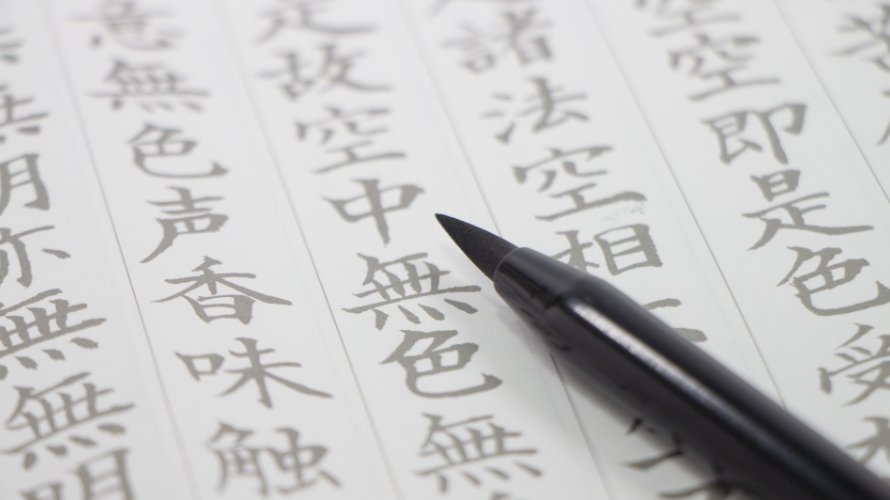 空空即是色受
是諸法空相
是故空中無色無
意無色声香味触
無無明亦無無明